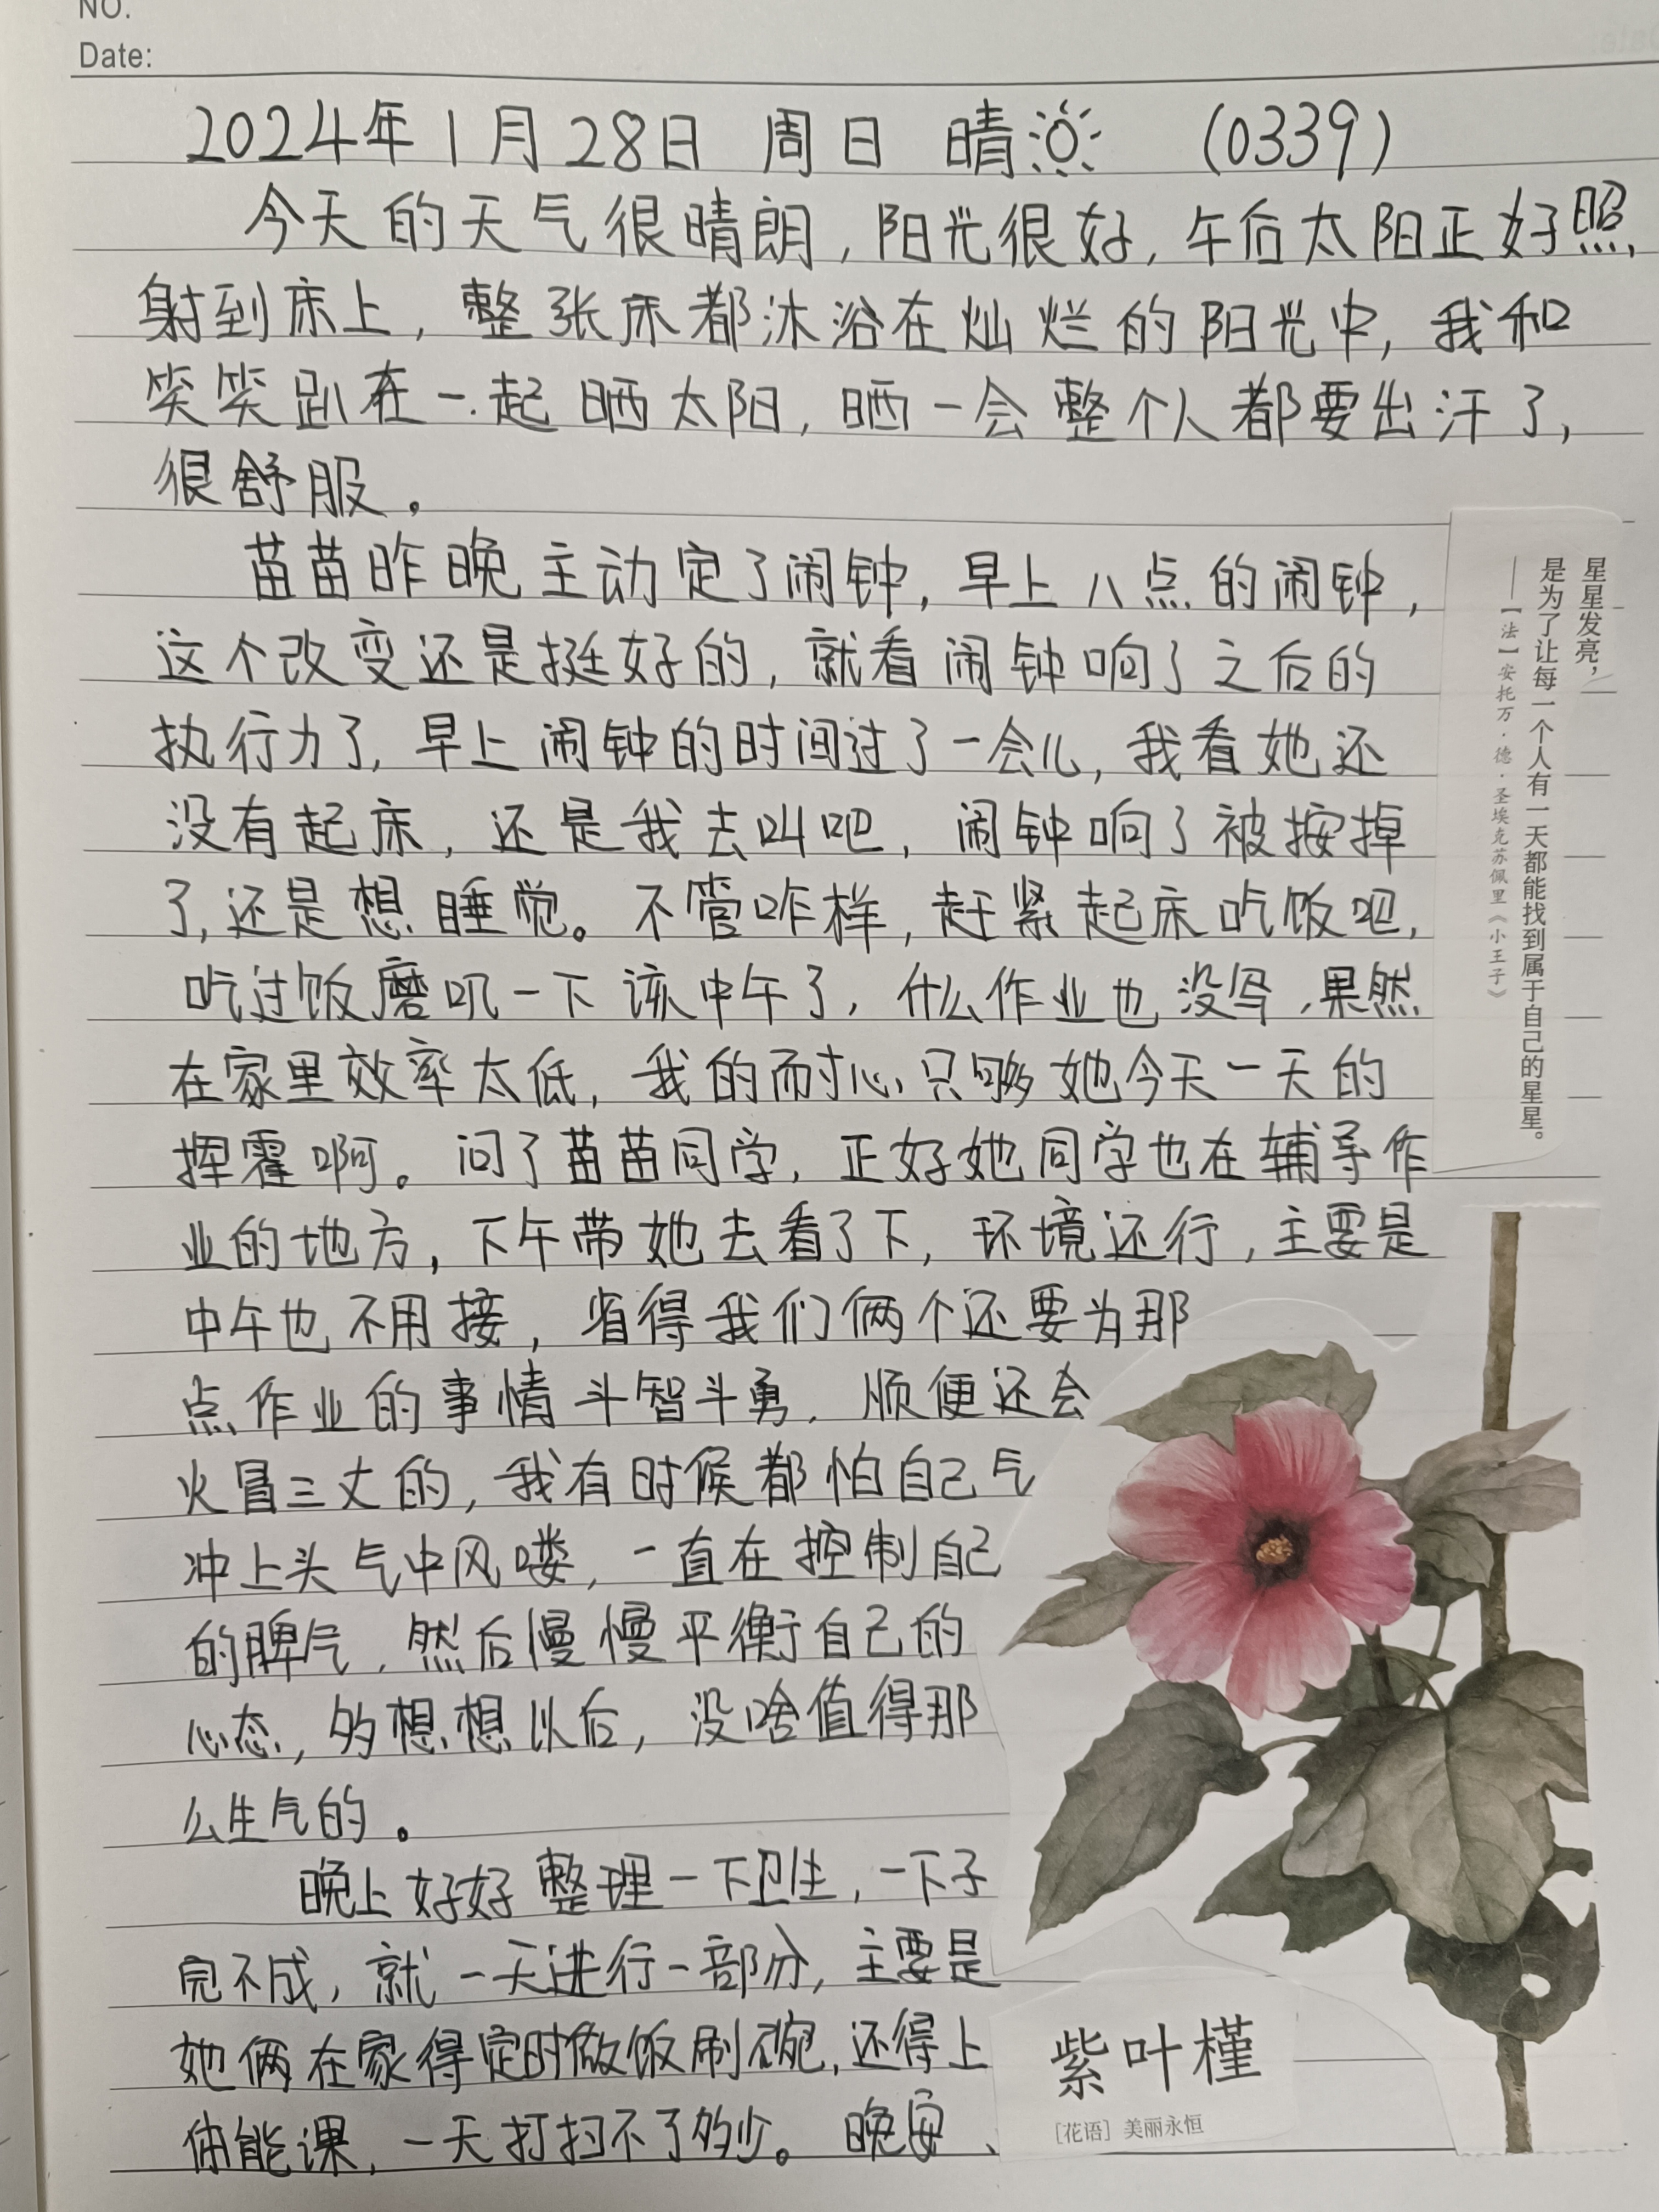 NO.
Date:
2024年1月28日 周日 晴 (0339)
今天的天气很晴朗,阳光很好,午后太阳正好照
射到床上,整张床都沐浴在灿烂的阳光中,我和
笑笑趴在一起晒太阳,晒一会整个人都要出汗了,
很舒服。
苗苗昨晚主动定了闹钟,早上八点的闹钟,
这个改变还是挺好的,就看闹钟响了之后的
执行力了,早上闹钟的时间过了一会儿,我看她还
没有起床,还是我去叫吧,闹钟响了被按掉
了,还是想睡觉。不管咋样,赶紧起床吃饭吧,
吃过饭磨叽一下该中午了,什么作业也没写,果然
在家里效率太低,我的耐心只够她今天一天的
挥霍啊。问了苗苗同学,正好她同学也在辅导作
业的地方,下午带她去看了下,环境还行,主要是
中午也不用接,省得我们俩个还要为那
点作业的事情斗智斗勇,顺便还会
火冒三丈的,我有时候都怕自己气
冲上头气中风喽,一直在控制自己
的脾气,然后慢慢平衡自己的
心态,多想想以后,没啥值得那
么生气的。
晚上好好整理一下卫生,一下子
完不成,就一天进行一部分,主要是
她俩在家得定时做饭刷碗,还得上
体能课,一天打扫不了多少。晚安、
星星发亮,
是为了让每一个人有一天都能找到属于自己的星星。
——【法】安托万·德·圣埃克苏佩里《小王子》
紫叶槿
[花语] 美丽永恒